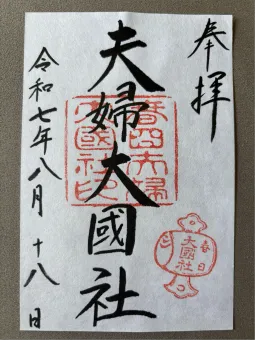 奉拝
夫婦大國社
令和七年八月十八日
春日夫婦
大國社印
春日
大國社